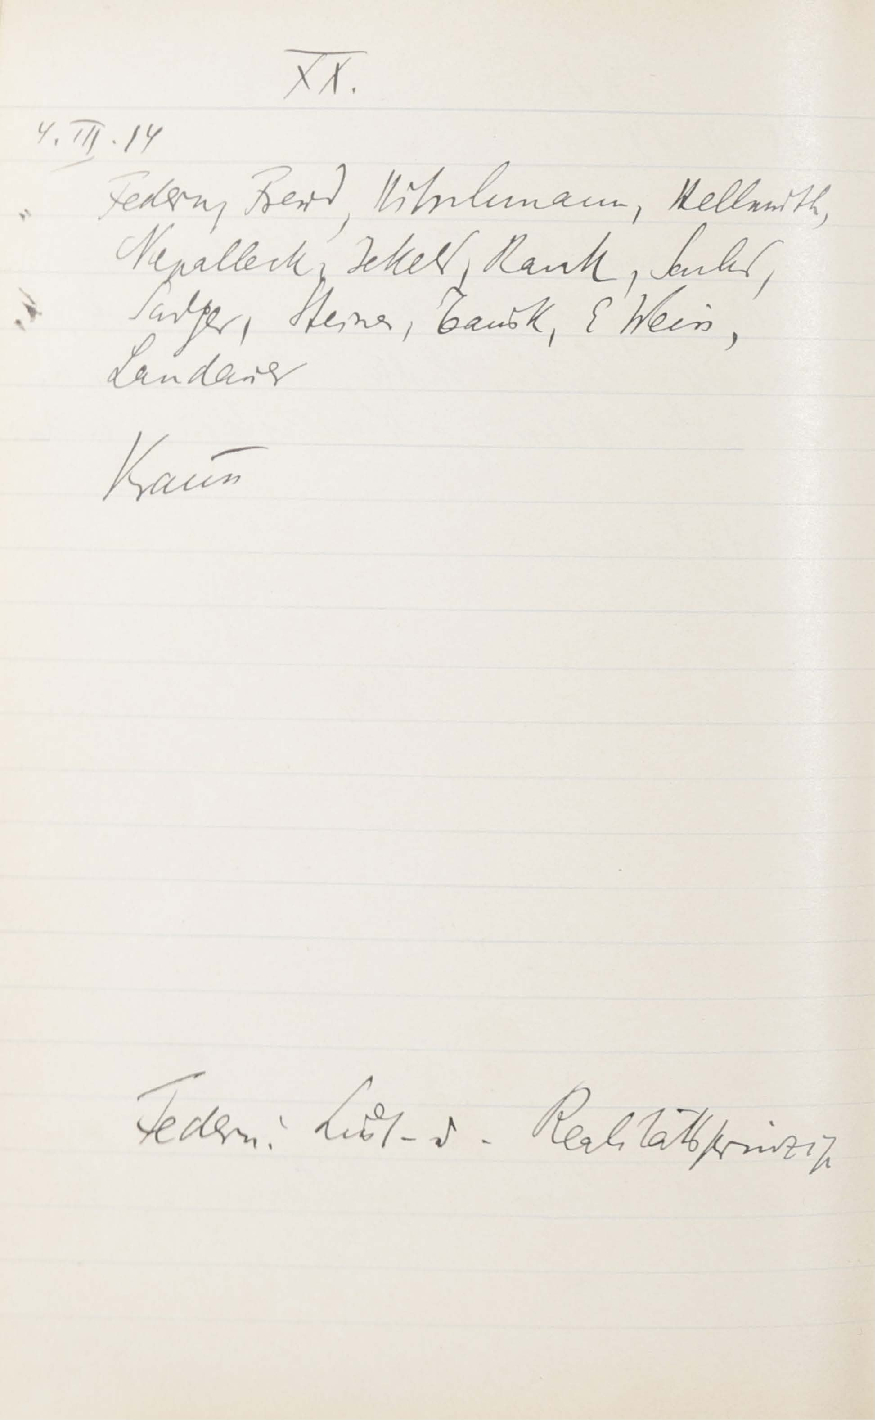 XX.
4.III.14
Federn, Freud, Hitschmann, Hellmuth,
Nepalleck, Jekels, Rank, Sachs,
Sadger, Steiner, Tausk, E Weiss,
Landauer
Krauss
Federn: Lust- u - Realitätsprinzip